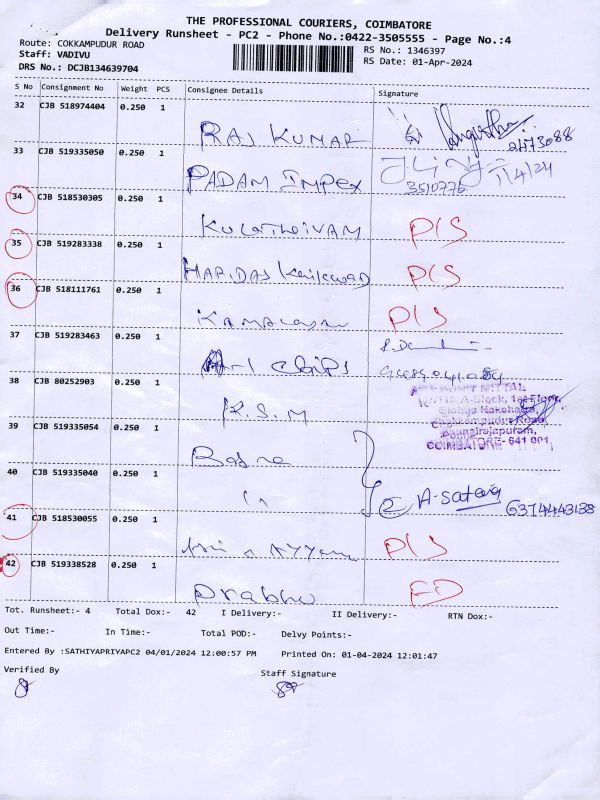 THE PROFESSIONAL COURIERS, COIMBATORE
Delivery Runsheet - PC2 - Phone No.:0422-3505555 - Page No.:4
Route: COKKAMPUDUR ROAD
RS No.: 1346397
Staff: VADIVU
RS Date: 01-Apr-2024
DRS No.: DCJB134639704
S No Consignment No Weight PCS Consignee Details Signature
32 CJB 518974404 0.250 1
RAJ KUMAR
33 CJB 519335050 0.250 1
PADAM IMPEX 3510776 1/4/24
34 CJB 518530305 0.250 1
KulaTheiVAM P/S
35 CJB 519283338 0.250 1
HARIDAS P/S
36 CJB 518111761 0.250 1
P/S
37 CJB 519283463 0.250 1
chips
38 CJB 80252903 0.250 1
K.S.M
A-Block, 1st Floor,
Cokkampudur Road,
COIMBATORE - 641 001.
39 CJB 519335054 0.250 1
40 CJB 519335040 0.250 1
" A-Sateesh 6374443138
41 CJB 518530055 0.250 1
P/S
42 CJB 519338528 0.250 1
Prabhu FD
Tot. Runsheet:- 4 Total Dox:- 42 I Delivery:- II Delivery:- RTN Dox:-
Out Time:- In Time:- Total POD:- Delvy Points:-
Entered By :SATHIYAPRIYAPC2 04/01/2024 12:00:57 PM Printed On: 01-04-2024 12:01:47
Verified By Staff Signature